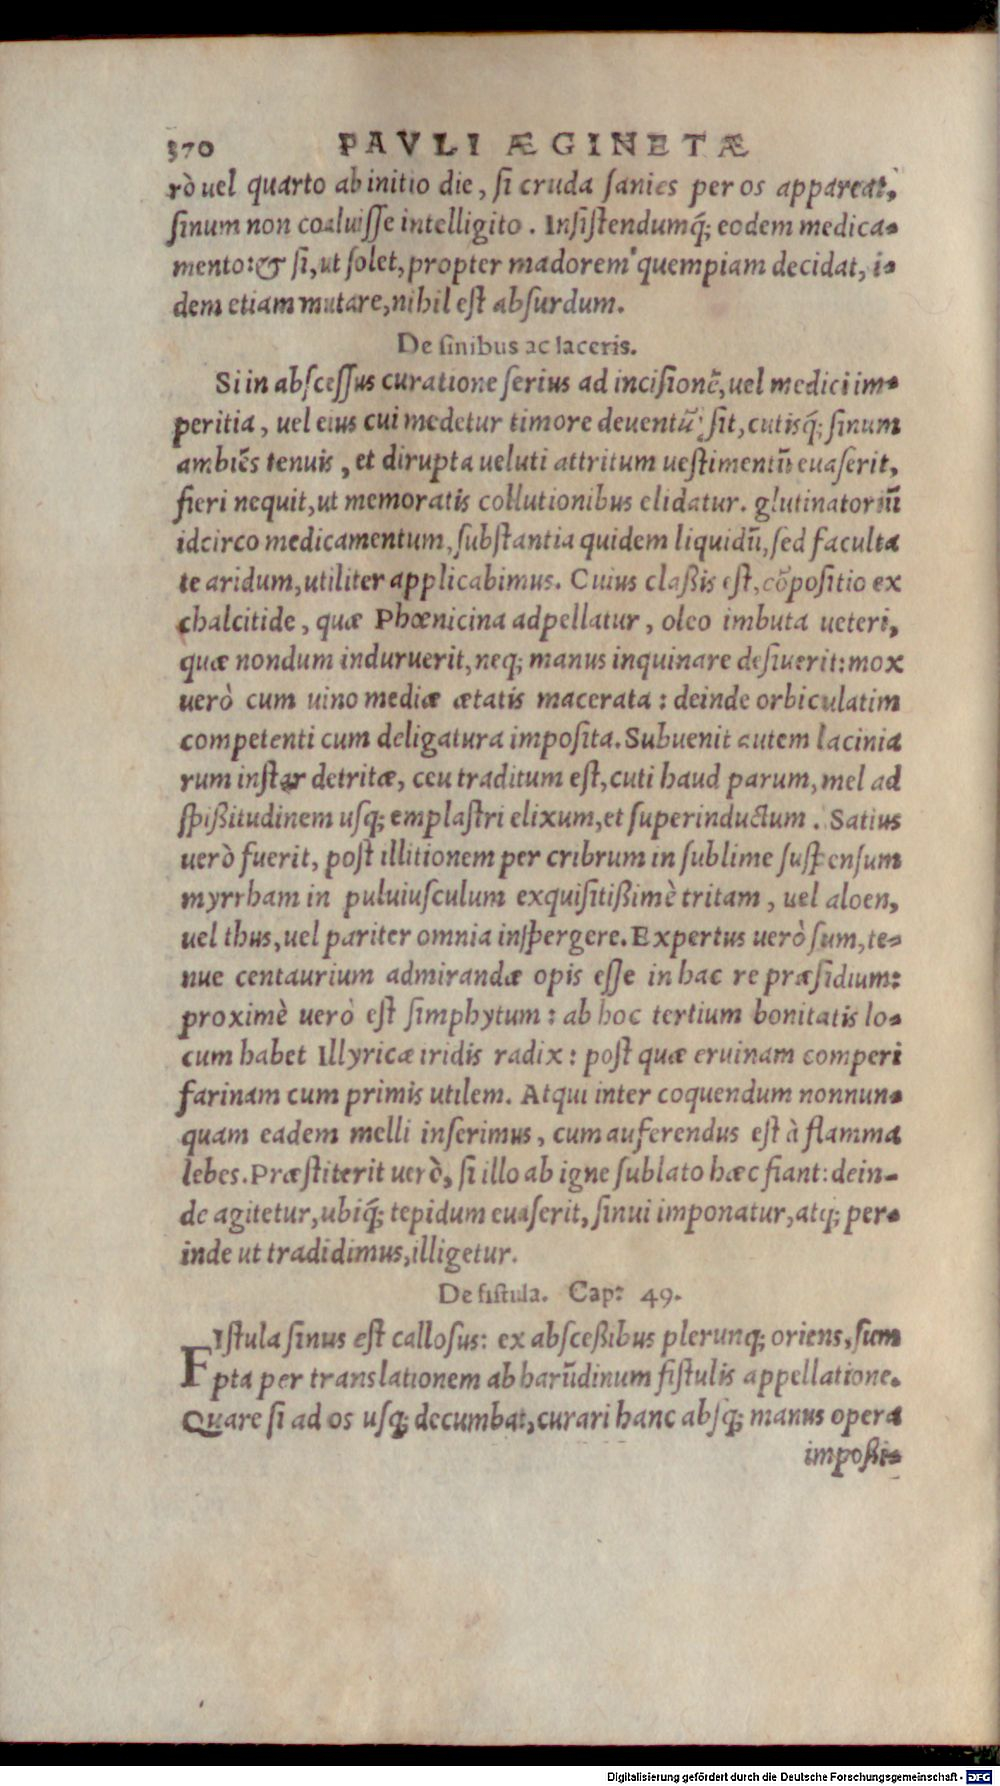 370 PAVLI ÆGINETÆ
rò uel quarto ab initio die, si cruda sanies per os appareat,
sinum non coaluisse intelligito. Insistendumq́; eodem medica-
mento: & si, ut solet, propter madorem quempiam decidat, i-
dem etiam mutare, nihil est absurdum.
De sinibus ac laceris.
Si in abscessus curatione serius ad incisionē, uel medici im-
peritia, uel eius cui medetur timore deuentū sit, cutisq́; sinum
ambiēs tenuis, et dirupta ueluti attritum uestimentū euaserit,
fieri nequit, ut memoratis collutionibus elidatur. glutinatoriū
idcirco medicamentum, substantia quidem liquidū, sed faculta
te aridum, utiliter applicabimus. Cuius claßis est, cōpositio ex
chalcitide, quæ Phœnicina adpellatur, oleo imbuta ueteri,
quæ nondum induruerit, neq; manus inquinare desiuerit: mox
uerò cum uino mediæ ætatis macerata: deinde orbiculatim
competenti cum deligatura imposita. Subuenit autem lacinia
rum instar detritæ, ceu traditum est, cuti haud parum, mel ad
spißitudinem usq; emplastri elixum, et superinductum. Satius
uerò fuerit, post illitionem per cribrum in sublime suspensum
myrrham in puluiusculum exquisitißimè tritam, uel aloen,
uel thus, uel pariter omnia inspergere. Expertus uerò sum, te-
nue centaurium admirandæ opis esse in hac re præsidium:
proximè uerò est simphytum: ab hoc tertium bonitatis lo-
cum habet Illyricæ iridis radix: post quæ eruinam comperi
farinam cum primis utilem. Atqui inter coquendum nonnun-
quam eadem melli inserimus, cum auferendus est à flamma
lebes. Præstiterit uerò, si illo ab igne sublato hæc fiant: dein-
de agitetur, ubiq́; tepidum euaserit, sinui imponatur, atq; per-
inde ut tradidimus, illigetur.
De fistula. Cap: 49.
FIstula sinus est callosus: ex absceßibus plerunq; oriens, sum
pta per translationem ab harūdinum fistulis appellatione.
Quare si ad os usq; decumbat, curari hanc absq; manus opera
impoßi-
Digitalisierung gefördert durch die Deutsche Forschungsgemeinschaft - DFG